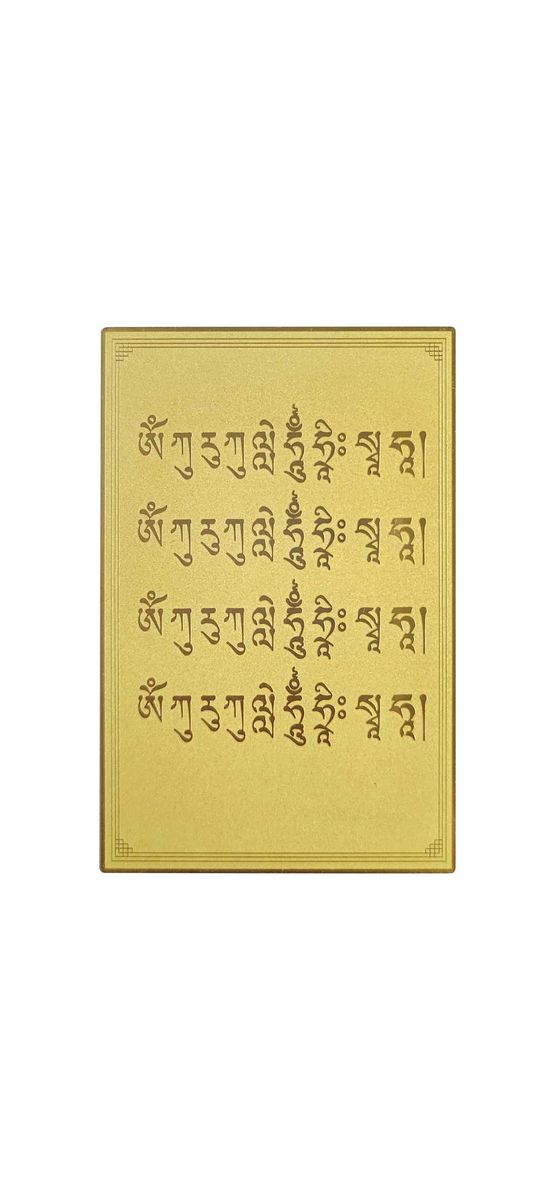 ཨོཾ ཀུ རུ ཀུ ལླེ ཧཱུྃ ཧྲཱིཿ སྭཱ ཧཱ།
ཨོཾ ཀུ རུ ཀུ ལླེ ཧཱུྃ ཧྲཱིཿ སྭཱ ཧཱ།
ཨོཾ ཀུ རུ ཀུ ལླེ ཧཱུྃ ཧྲཱིཿ སྭཱ ཧཱ།
ཨོཾ ཀུ རུ ཀུ ལླེ ཧཱུྃ ཧྲཱིཿ སྭཱ ཧཱ།